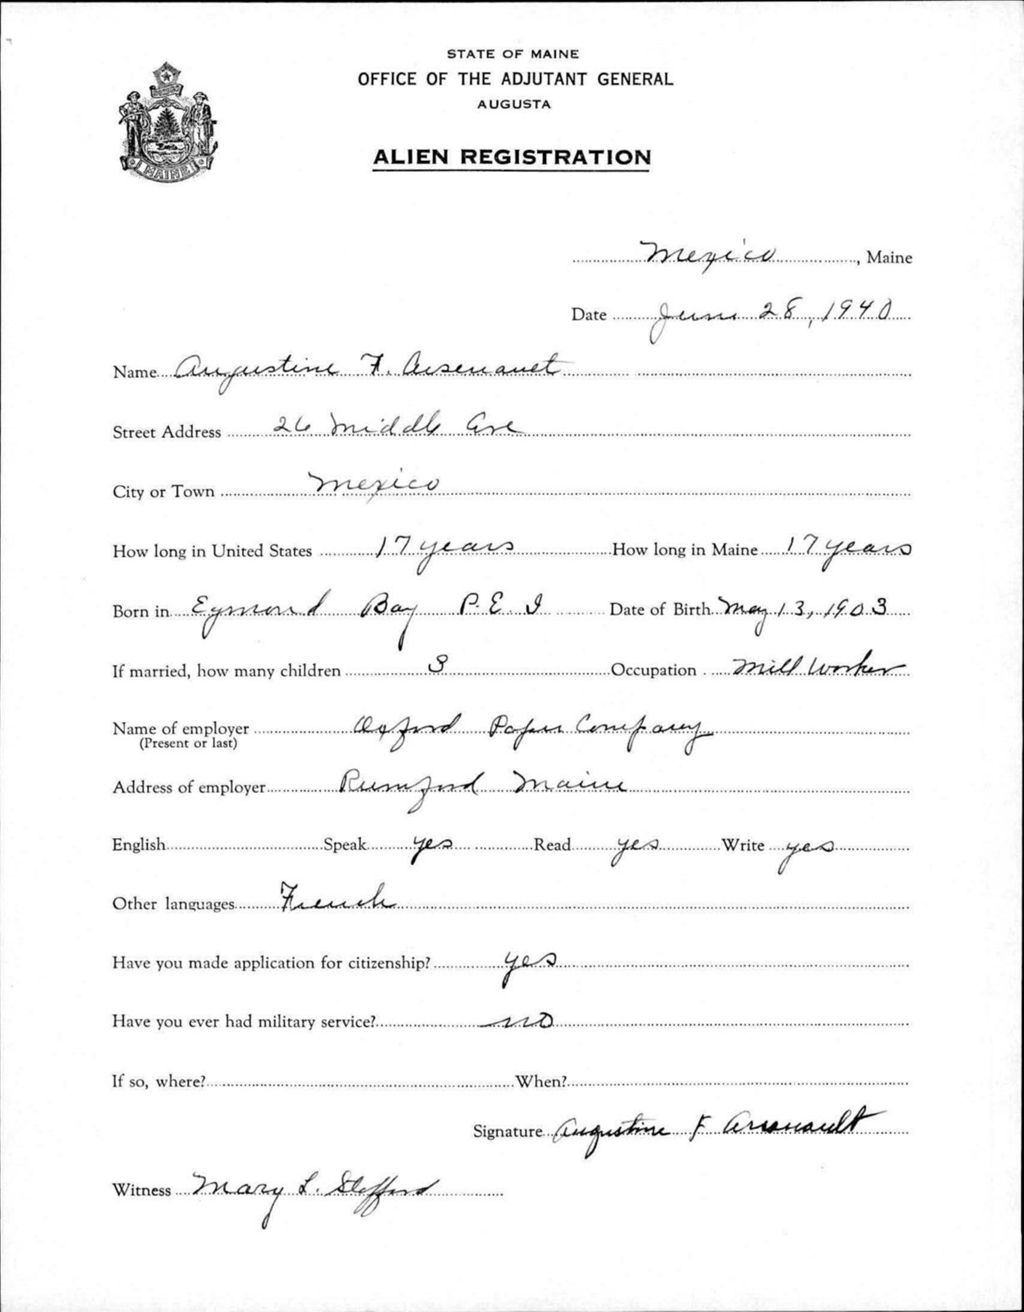 STATE OF MAINE
OFFICE OF THE ADJUTANT GENERAL
AUGUSTA
ALIEN REGISTRATION
MAINE
Mexico, Maine
Date June 28, 1940
Name Augustine F. Arsenault
Street Address 26 Middle Ave
City or Town Mexico
How long in United States 17 years How long in Maine 17 years
Born in Egmond Bay P.E.I Date of Birth May 13, 1903
If married, how many children 3 Occupation Mill Worker
Name of employer Oxford Paper Company
(Present or last)
Address of employer Rumford Maine
English Speak yes Read yes Write yes
Other languages French
Have you made application for citizenship? yes
Have you ever had military service? no
If so, where? When?
Signature Augustine F Arsenault
Witness Mary L.